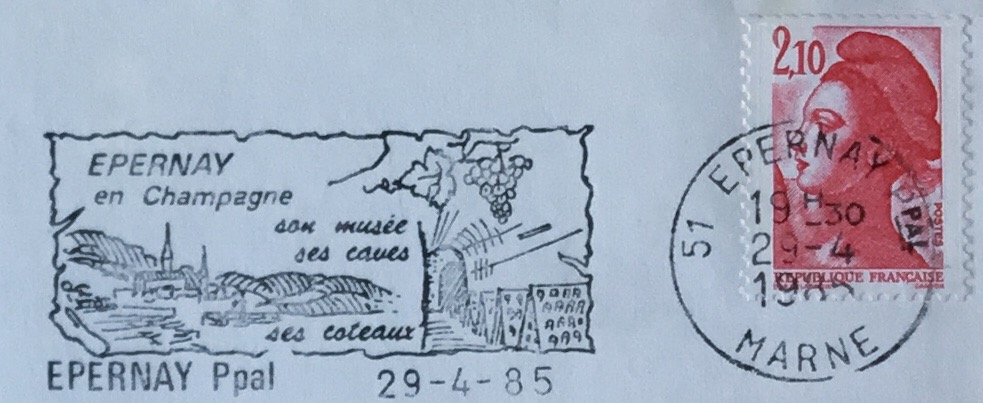 EPERNAY
en Champagne
son musée
ses caves
ses coteaux
EPERNAY Ppal
29-4-85
2,10
51 EPERNAY PPAL
19H30
29-4
MARNE
POSTES
REPUBLIQUE FRANÇAISE